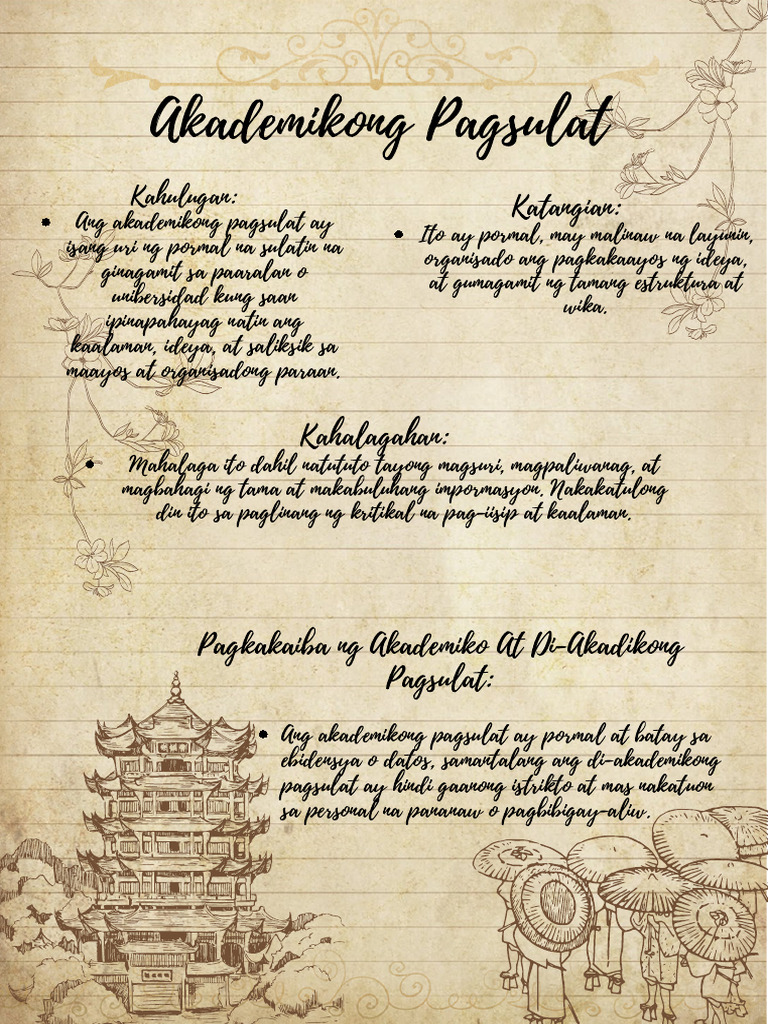 Akademikong Pagsulat
Kahulugan:
Ang akademikong pagsulat ay
isang uri ng pormal na sulatin na
ginagamit sa paaralan o
unibersidad kung saan
ipinapahayag natin ang
kaalaman, ideya, at saliksik sa
maayos at organisadong paraan.
Katangian:
Ito ay pormal, may malinaw na layunin,
organisado ang pagkakaayos ng ideya,
at gumagamit ng tamang estruktura at
wika.
Kahalagahan:
Mahalaga ito dahil natututo tayong magsuri, magpaliwanag, at
magbahagi ng tama at makabuluhang impormasyon. Nakakatulong
din ito sa paglinang ng kritikal na pag-iisip at kaalaman.
Pagkakaiba ng Akademiko At Di-Akadikong
Pagsulat:
Ang akademikong pagsulat ay pormal at batay sa
ebidensya o datos, samantalang ang di-akademikong
pagsulat ay hindi gaanong istrikto at mas nakatuon
sa personal na pananaw o pagbibigay-aliw.